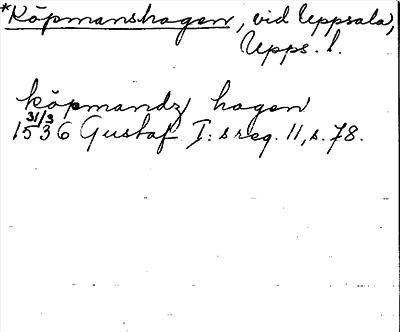 *Köpmanshagen, vid Uppsala,
Upps. l.
köpmandz hagen
31/3
1536 Gustaf I:s reg. 11, s. 78.